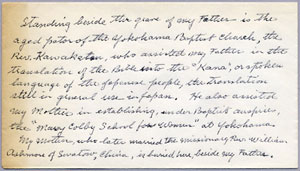 Standing beside the grave of my Father is the
aged pastor of the Yokohama Baptist Church, the
Rev. Kawakatsu, who assisted my Father in the
translation of the Bible into the "Kana", or spoken
language of the Japanese people, the translation
still in general use in Japan. He also assisted
my Mother in establishing, under Baptist auspices,
the "Mary Colby School for Women" at Yokohama
My Mother, who later married the missionary Rev. William
Ashmore of Swatow, China, is buried here, beside my Father.